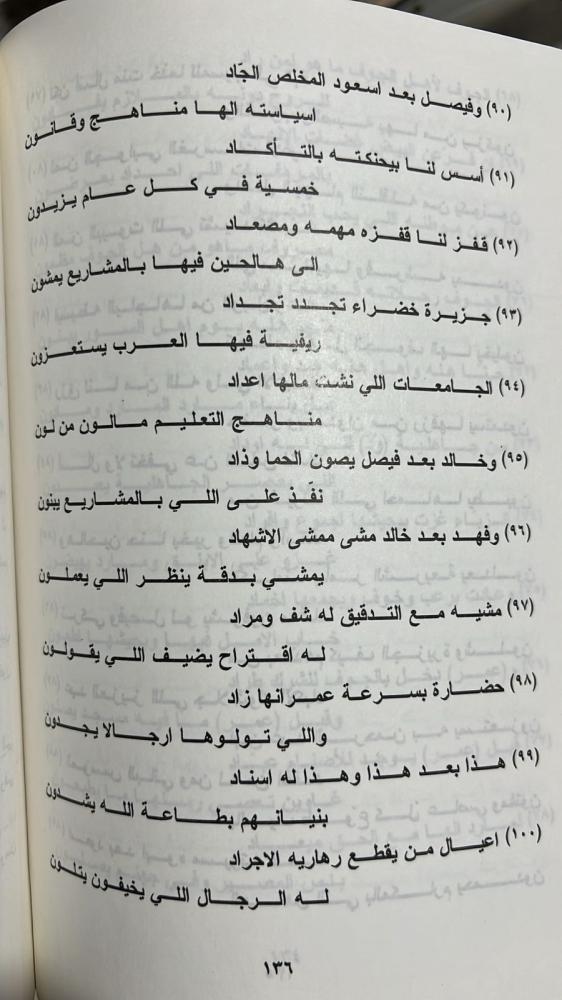 (٩٠) وفيصل بعد اسعود المخلص الجّاد
اسياسته الها مناهج وقانون
(٩١) أسس لنا بيحنكته بالتأكاد
خمسية في كل عام يزيدون
(٩٢) قفز لنا قفزه مهمه ومصعاد
الى هالحين فيها بالمشاريع يمشون
(٩٣) جزيرة خضراء تجدد تجداد
ريفية فيها العرب يستعزون
(٩٤) الجامعات اللي نشت مالها اعداد
مناهج التعليم مالون من لون
(٩٥) وخالد بعد فيصل يصون الحما وذاد
نفّذ على اللي بالمشاريع يبنون
(٩٦) وفهد بعد خالد مشى ممشى الاشهاد
يمشي بدقة ينظر اللي يعملون
(٩٧) مشيه مع التدقيق له شف ومراد
له اقتراح يضيف اللي يقولون
(٩٨) حضارة بسرعة عمرانها زاد
واللي تولوها ارجالا يجدون
(٩٩) هذا بعد هذا وهذا له اسناد
بنيانهم بطاعة الله يشدون
(١٠٠) اعيال من يقطع رهاريه الاجراد
له الرجال اللي يخيفون يتلون
١٣٦